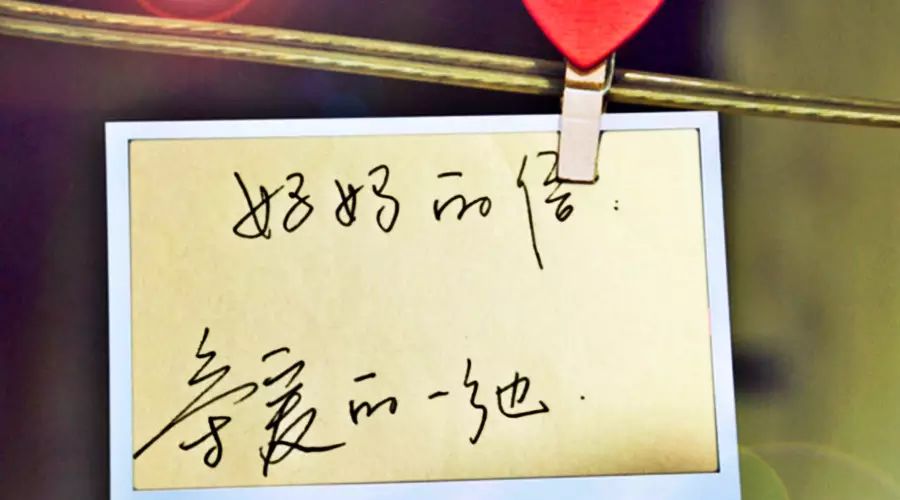 好妈的信:
亲爱的一弛.